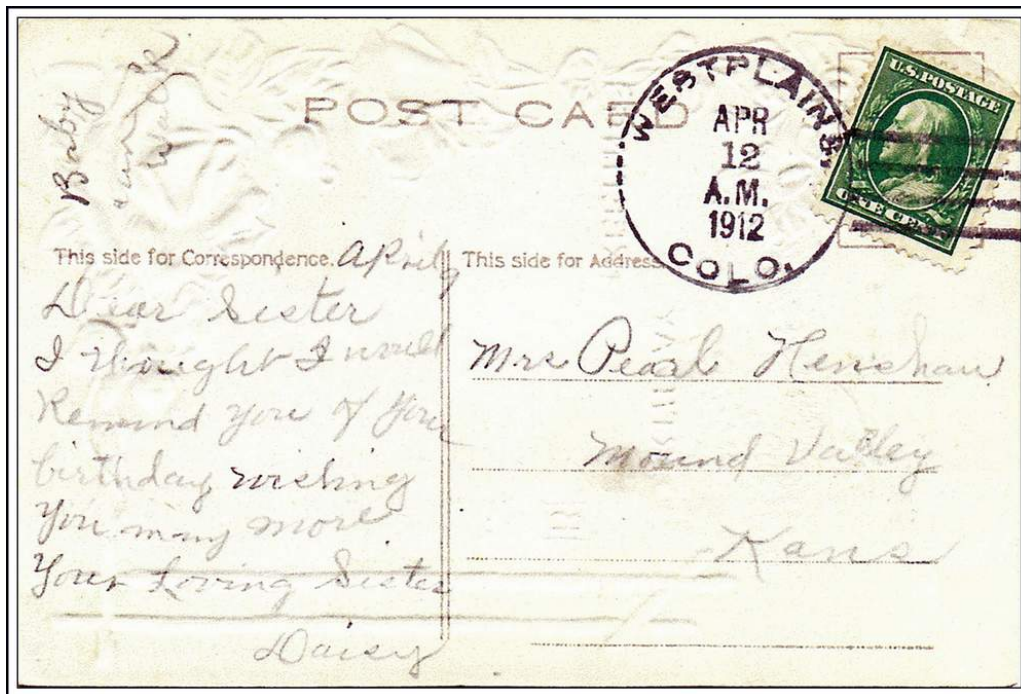 Baby
can
walk
POST CARD
WESTPLAINS,
APR
12
A.M.
1912
COLO.
U.S. POSTAGE
ONE CENT
This side for Correspondence.
April 9
This side for Address
Dear Sister
I thought I would
Remind you of your
birthday wishing
you many more
Your Loving Sister
Daisy
Mrs Pearl Henshaw
Mound Valley
Kans